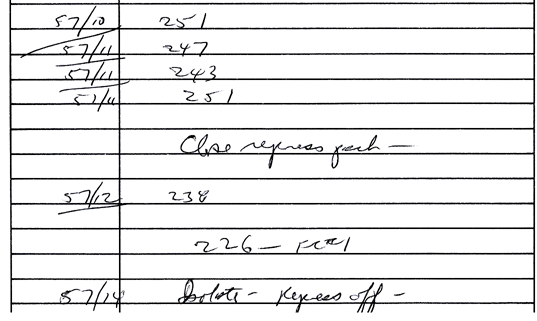 57/10 251
57/11 247
57/11 243
57/11 251
Close repress pach —
57/12 238
226 — FC#1
57/14 Isolate - repress off -